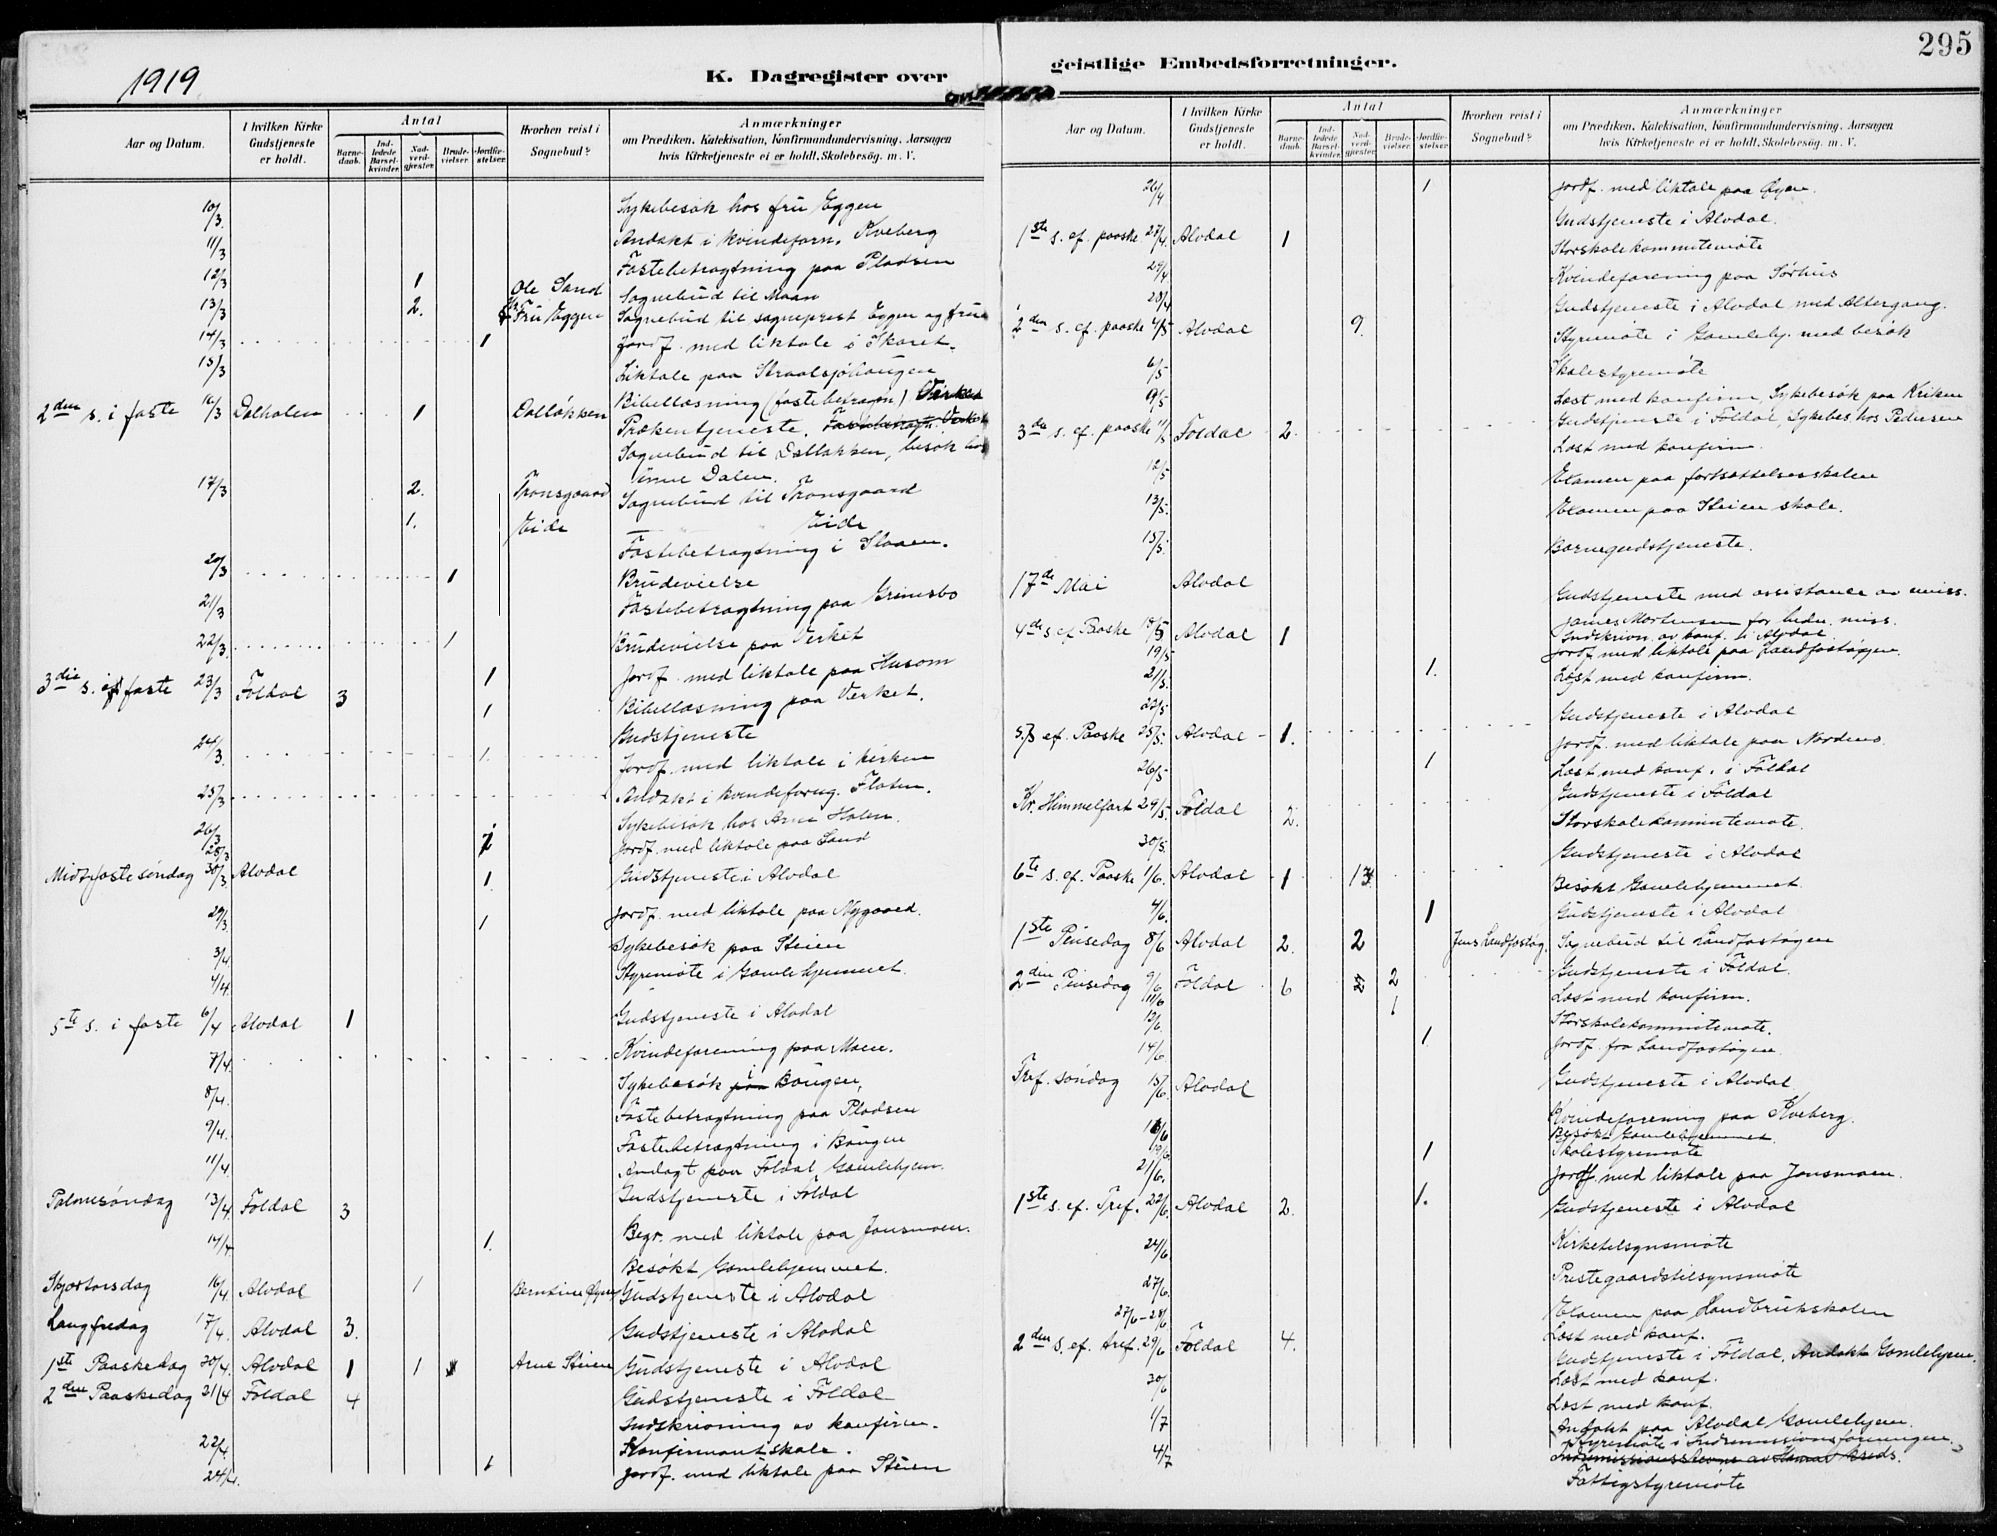 295
1919
K. Dagregister over
geistlige Embedsforretninger.
Aar og Datum.
I hvilken Kirke Gudstjeneste er holdt.
Antal
Barnedaab.
Indledede Barselkvinder.
Nadverdgjester.
Brudevielser
Jordfæstelser.
Hvorhen reist i Sognebud?
Anmærkninger
om Prædiken, Katekisation, Konfirmandundervisning, Aarsagen
hvis Kirketjeneste ei er holdt, Skolebesøg, m. V.
10/3 Sykebesøk hos fru Eggen
11/3 Andakt i kvindeforn. Kveberg
Fastebetragtning paa Pladsen
12/3 1 Ole Sand Sognebud til Moan
13/3 2. Fru Eggen Sognebud til sogneprest Eggen og frue
14/3 1 Jordf. med liktale i Skaret.
15/3 Liktale paa Straalsjøhaugen
Bibellæsning (fastebetragtn)
2den s. i faste 16/3 Dalholen 1 Dalløkken Prækentjeneste.
Sognebud til Dalløkken, besøk hos
Dalen.
17/3 2. Tronsgaard Sognebud til Tronsgaard
1. Eide — Eide
Fastebetragtning i Slaaen.
20/3 1 Brudevielse
21/3 Fastebetragtning paa Grimsbo
22/3 1 Brudevielse paa Verket
1 Jordf. med liktale paa Husom
3die s. i faste 23/3 Foldal 3 1 Bibellæsning paa Verket.
Gudstjeneste
24/3 1. Jordf. med liktale i kirken
25/3 Andakt i kvindeforng. Floten.
26/3 Sykebesøk hos Arne Holen.
28/3 Jordf. med liktale paa Sand
Midtfastesøndag 30/3 Alvdal 1. Gudstjeneste i Alvdal
29/3 1 Jordf. med liktale paa Nygaard.
3/4 Sykebesøk paa Steien
4/4 Styremøte i Gamlehjemmet.
5te s. i faste 6/4 Alvdal 1 Gudstjeneste i Alvdal
7/4 Kvindeforening paa Moen.
8/4 Sykebesøk i Haugen,
Fastebetragtning paa Pladsen
9/4. Fastebetragtning i Haugen
11/4 Andagt paa Foldal Gamlehjem.
Palmesøndag 13/4 Foldal 3 Gudstjeneste i Foldal
14/4 1. Begr. med liktale paa Jonsmoen.
Besøkt Gamlehjemmet.
Skjærtorsdag 16/4 Alvdal 1 Berntine Øyen Gudstjeneste i Alvdal
Langfredag 17/4. Alvdal 3. Gudstjeneste i Alvdal
1ste Paaskedag 20/4. Alvdal 1 1 Arne Steien Gudstjeneste i Alvdal
2den Paaskedag 21/4 Foldal 4 Gudstjeneste i Foldal
Indskrivning av konfirm.
22/4. Konfirmantskole.
24/4. 1 Jordf. med liktale paa Steien
Aar og Datum.
I hvilken Kirke Gudstjeneste er holdt.
Antal
Barnedaab.
Indledede Barselkvinder.
Nadverdgjester.
Brudevielser.
Jordfæstelser.
Hvorhen reist i Sognebud?
Anmærkninger
om Prædiken, Katekisation, Konfirmandundervisning, Aarsagen
hvis Kirketjeneste ei er holdt, Skolebesøg, m. V.
26/4 1 Jordf. med liktale paa Øyen.
1ste s. ef. paaske 27/4. Alvdal 1 Gudstjeneste i Alvdal.
Storskolekommitemøte
29/4 Kvindeforening paa Sørhus
28/4
2den s. ef. paaske 4/5 Alvdal 9. Gudstjeneste i Alvdal med Altergang.
Styremøte i Gamlehj. med besøk
6/5 Skolestyremøte
9/5 Læst med konfirm, Sykebesøk paa Kriken
3de s. ef. paaske 11/5 Foldal 2. Gudstjeneste i Foldal, Sykebes. hos Pedersen
12/5 Læst med konfirm.
Examen paa fortsættelsesskolen
13/5. Examen paa Steien skole.
15/5. Barnegudstjeneste.
17de Mai Alvdal
Gudstjeneste med assistance av miss.
4de s ef. Paaske 18/5 Alvdal 1 James Mortensen for indre miss.
Indskrivn. av konf. i Alvdal
19/5 Jordf. med liktale paa Landfastøyen.
21/5. 1. Læst med konfirm.
22/5
5. s ef. Paaske 25/5. Alvdal 1. Gudstjeneste i Alvdal
26/5 1 Jordf. med liktale paa Nordmo.
Læst med konf. i Foldal
Kr. Himmelfart 29/5. Foldal 2. Gudstjeneste i Foldal
30/5 Storskolekommitemøte.
6te s. ef. Paaske 1/6. Alvdal 1 Gudstjeneste i Alvdal
4/6. 1 Besøkt Gamlehjemmet.
1ste Pinsedag 8/6 Alvdal 2. 2 Jens Landfastøy. Gudstjeneste i Alvdal
Sognebud til Landfastøyen
2den Pinsedag 9/6 Foldal 6 2 2 Gudstjeneste i Foldal.
11/6 1 Læst med konfirm.
12/6. Storskolekommitemøte.
14/6 1. Jordf. fra Landfastøyen.
Tref. søndag 15/6. Alvdal Gudstjeneste i Alvdal
Kvindeforening paa Kveberg.
Besøkt Gamlehjemmet.
19/6. Skolestyremøte
21/6. 1 Jordf. med liktale paa Jonsmoen.
1ste s. ef. Tref. 22/6. Alvdal 2. 1. Gudstjeneste i Alvdal
24/6 Kirketilsynsmøte
27/6. Prestegaardstilsynsmøte
27/6 – 28/6 Examen paa Haandbrukskolen
Læst med konf.
2den s. ef. tref. 29/6 Foldal 4. Gudstjeneste i Foldal, Andakt Gamlehjem.
30/6 Læst med konf.
1/7 Læst med konf.
Andakt paa Alvdal Gamlehjem.
4/7 Styremøte i Indremissionsforeningen
Fattigstyremøte